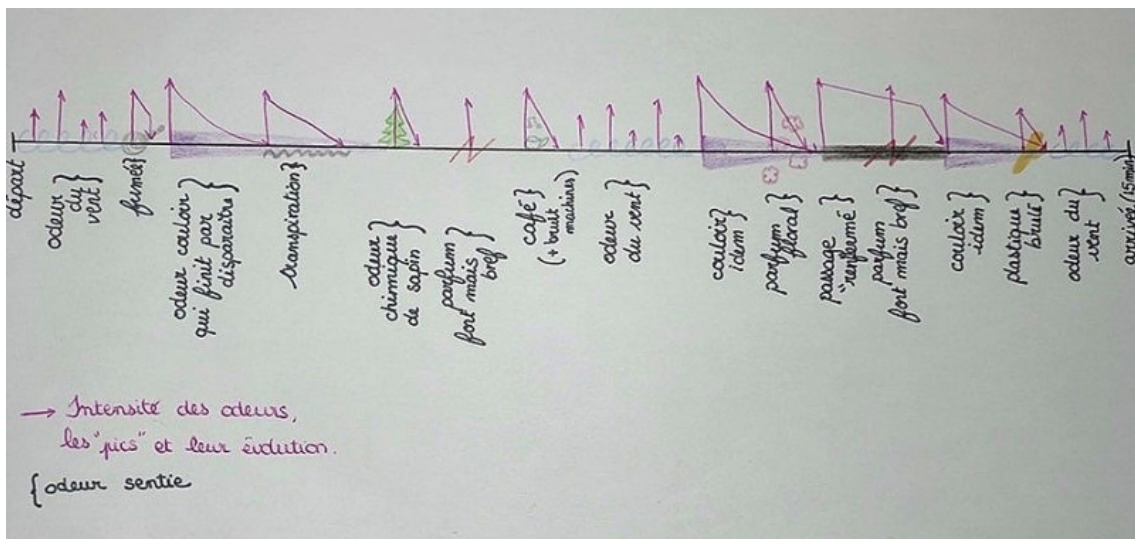 départ
odeur
du
vent }
fumée}
odeur couloir
qui finit par
disparaître }
transpiration}
odeur
chimique
de sapin }
parfum
fort mais
bref }
café }
(+ bruit
machines)
odeur
du vent }
couloir
idem }
parfum
floral }
passage
"renfermé" }
parfum
fort mais bref }
couloir
idem }
plastique
brulé }
odeur du
vent }
arrivée (15min)
→ Intensité des odeurs,
les "pics" et leur évolution.
{odeur sentie